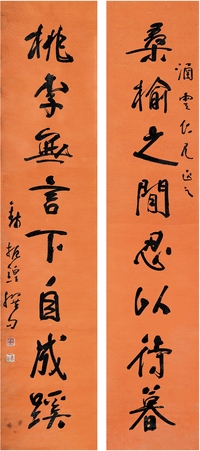 桑榆之間忍以待暮
涵雲仁兄正之
桃李無言下自成蹊
振鏗撰句